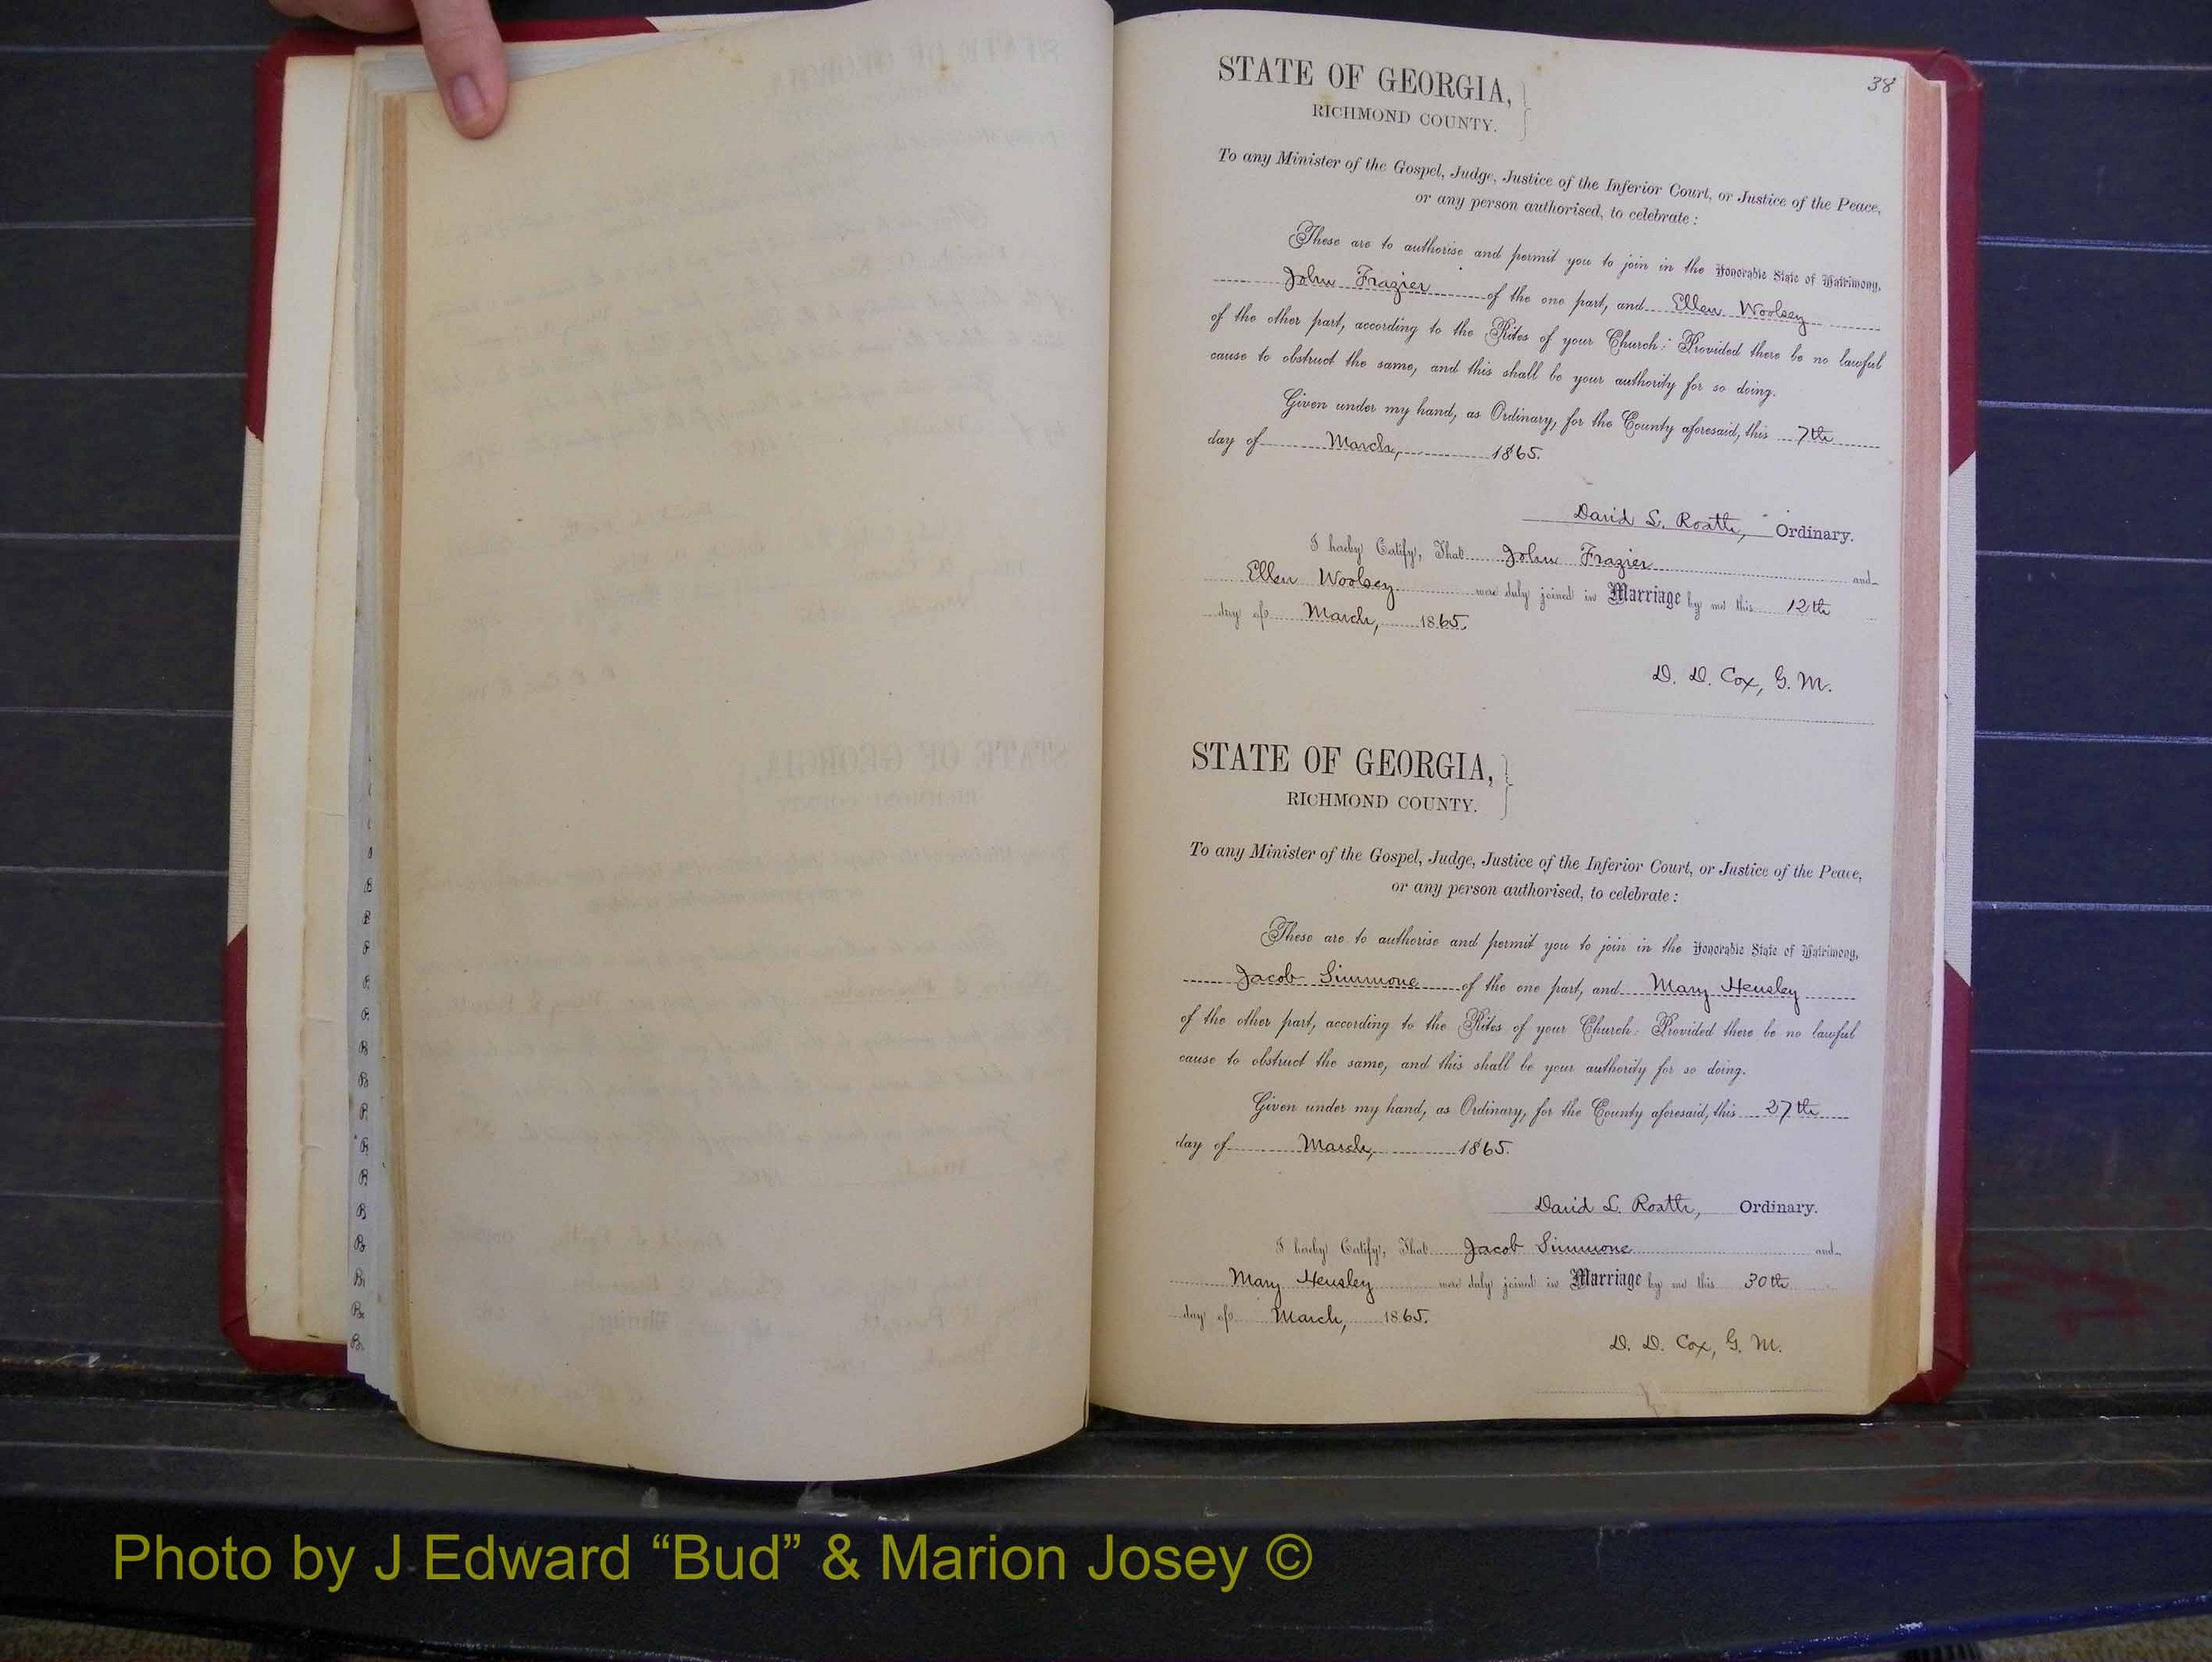 38
STATE OF GEORGIA,
RICHMOND COUNTY.
To any Minister of the Gospel, Judge, Justice of the Inferior Court, or Justice of the Peace,
or any person authorised, to celebrate:
These are to authorise and permit you to join in the Honorable State of Matrimony,
John Frazier of the one part, and Ellen Woolsey
of the other part, according to the Rites of your Church: Provided there be no lawful
cause to obstruct the same, and this shall be your authority for so doing.
Given under my hand, as Ordinary, for the County aforesaid, this 7th
day of March, 1865.
David L. Roath, Ordinary.
I hereby Certify, That John Frazier and
Ellen Woolsey were duly joined in Marriage by me this 12th
day of March, 1865.
D. D. Cox, G. M.
STATE OF GEORGIA,
RICHMOND COUNTY.
To any Minister of the Gospel, Judge, Justice of the Inferior Court, or Justice of the Peace,
or any person authorised, to celebrate:
These are to authorise and permit you to join in the Honorable State of Matrimony,
Jacob Simmone of the one part, and Mary Hensley
of the other part, according to the Rites of your Church: Provided there be no lawful
cause to obstruct the same, and this shall be your authority for so doing.
Given under my hand, as Ordinary, for the County aforesaid, this 27th
day of March, 1865.
David L. Roath, Ordinary.
I hereby Certify, That Jacob Simmone and
Mary Hensley were duly joined in Marriage by me this 30th
day of March, 1865.
D. D. Cox, G. M.
Photo by J Edward “Bud” & Marion Josey ©